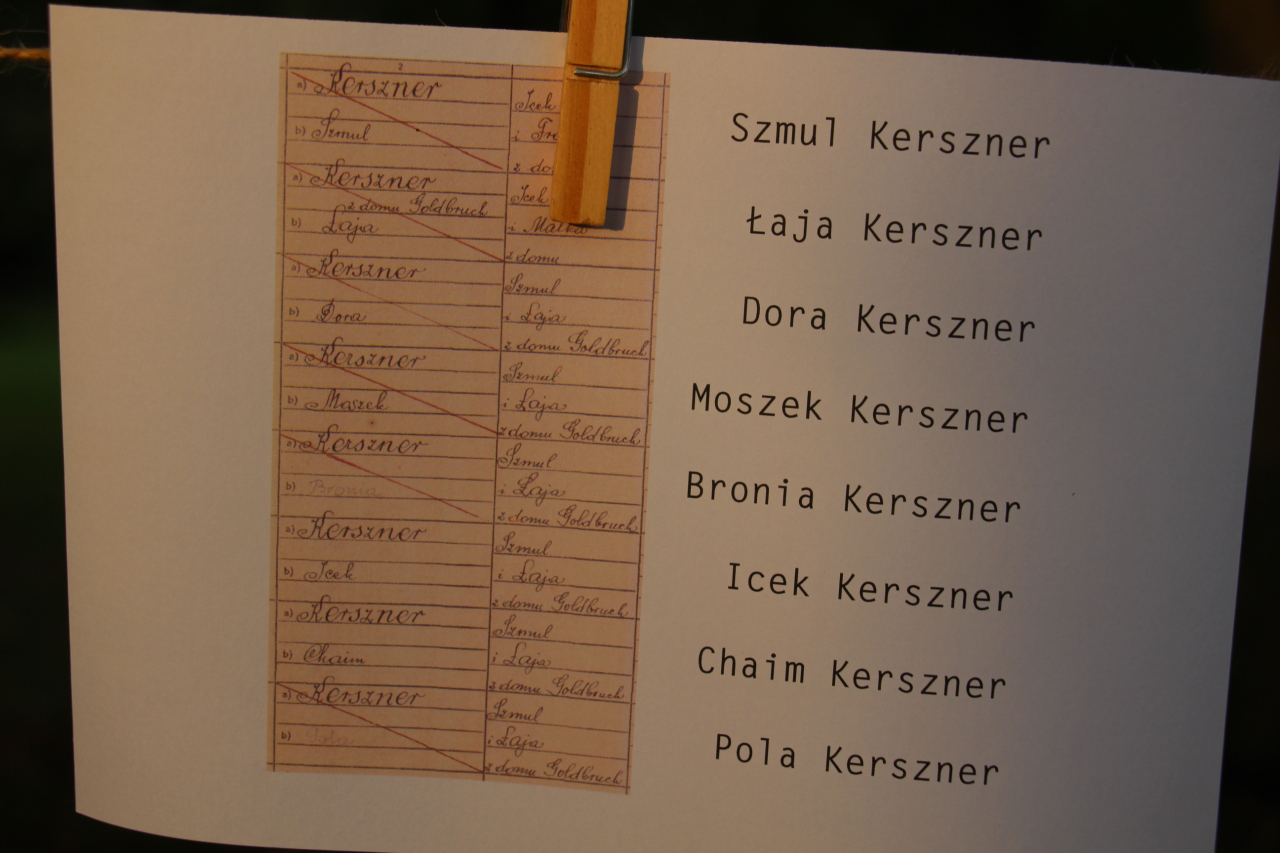 2
a) Kerszner
b) Szmul
Icek
i
z
a) Kerszner
z domu Goldbruch
b) Łaja
Icek
i Małka
z domu
a) Kerszner
b) Dora
Szmul
i Łaja
z domu Goldbruch
a) Kerszner
b) Moszek
Szmul
i Łaja
z domu Goldbruch
a) Kerszner
b) Bronia
Szmul
i Łaja
z domu Goldbruch
a) Kerszner
b) Icek
Szmul
i Łaja
z domu Goldbruch
a) Kerszner
b) Chaim
Szmul
i Łaja
z domu Goldbruch
a) Kerszner
b) Pola
Szmul
i Łaja
z domu Goldbruch
Szmul Kerszner
Łaja Kerszner
Dora Kerszner
Moszek Kerszner
Bronia Kerszner
Icek Kerszner
Chaim Kerszner
Pola Kerszner